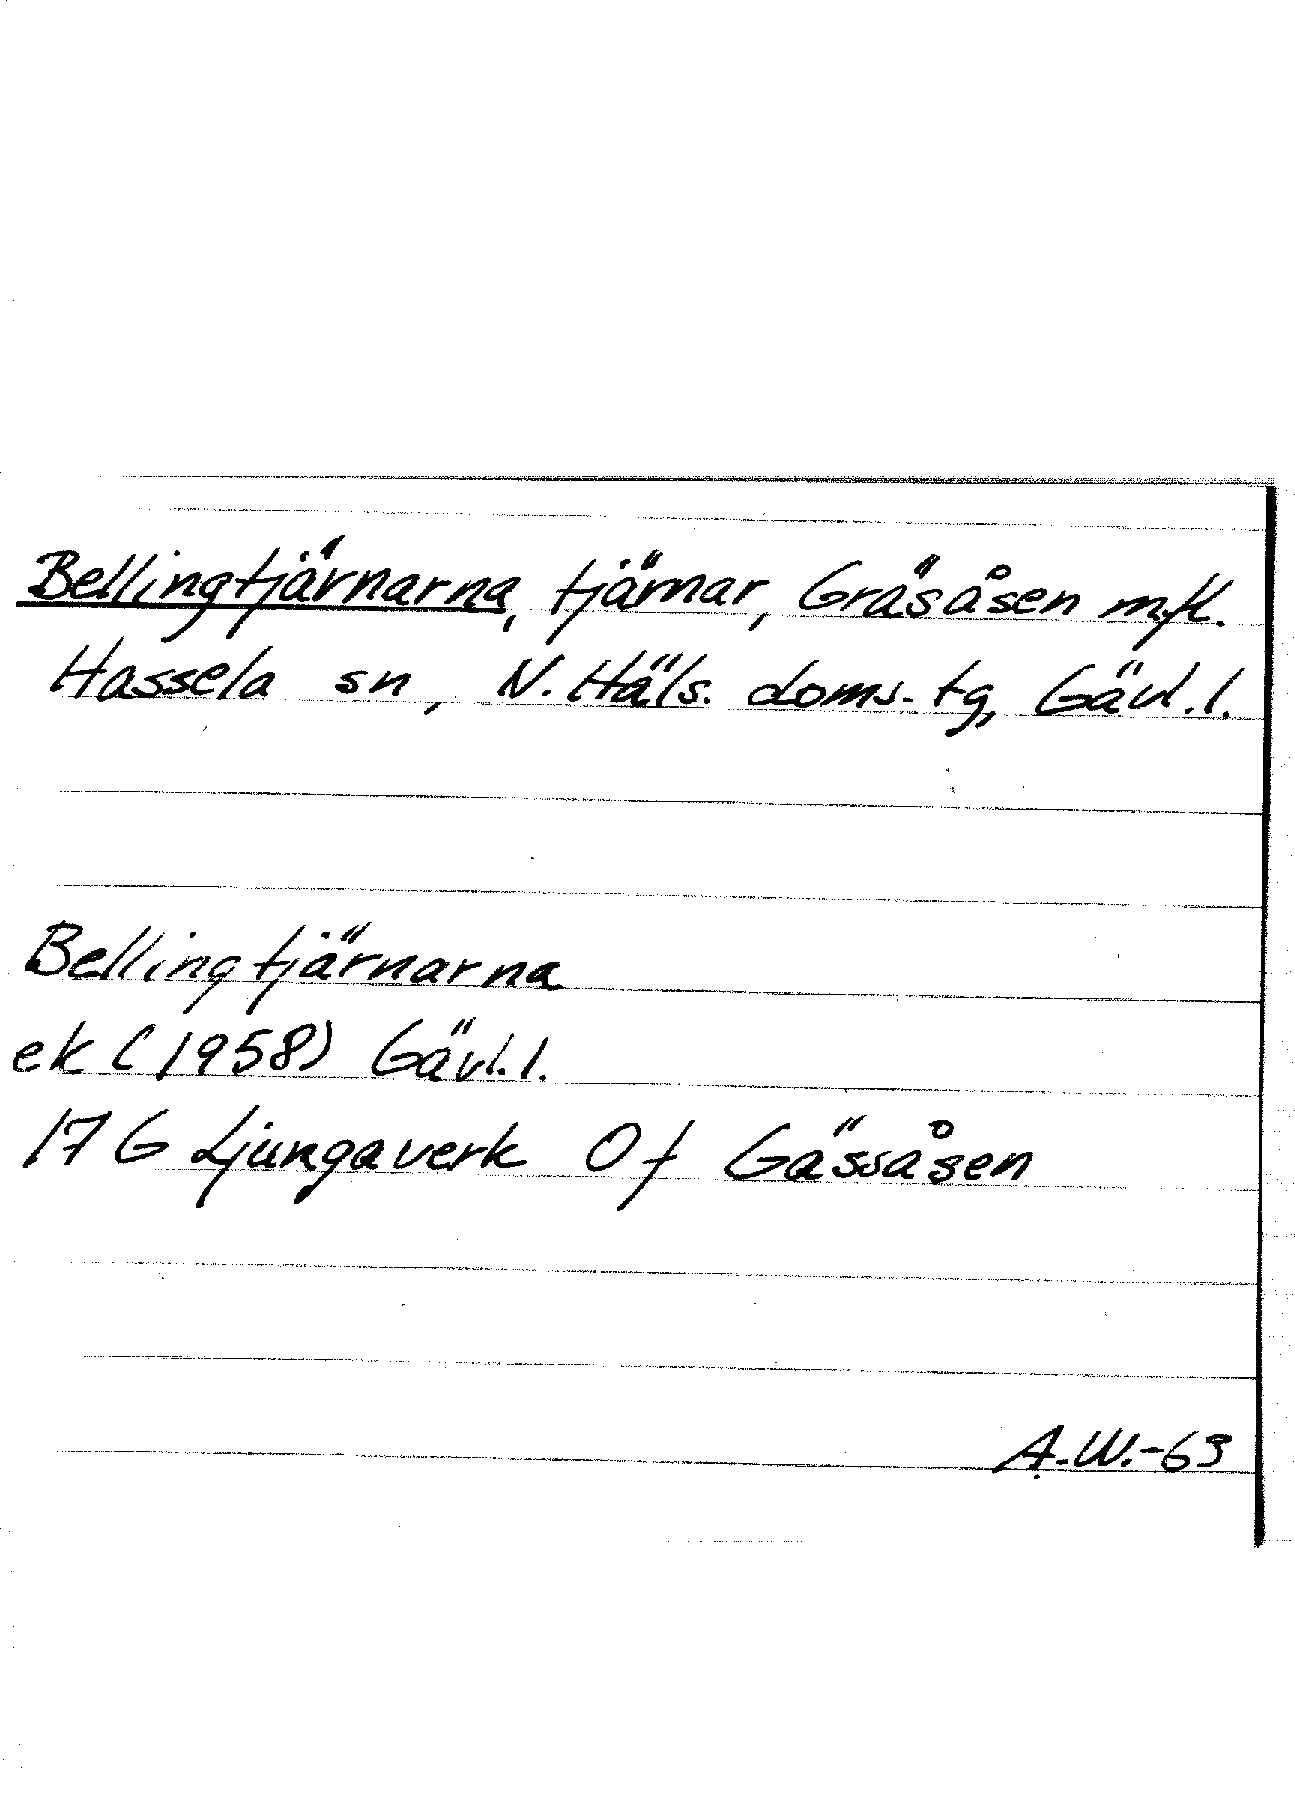 Bellingtjärnarna, tjärnar, Gräsåsen m.fl.
Hassela sn, N. Häls. doms. tg, Gävl. l.
Bellingtjärnarna
ek (1958) Gävl. l.
17 G Ljungaverk Of Gässåsen
A.W.-63